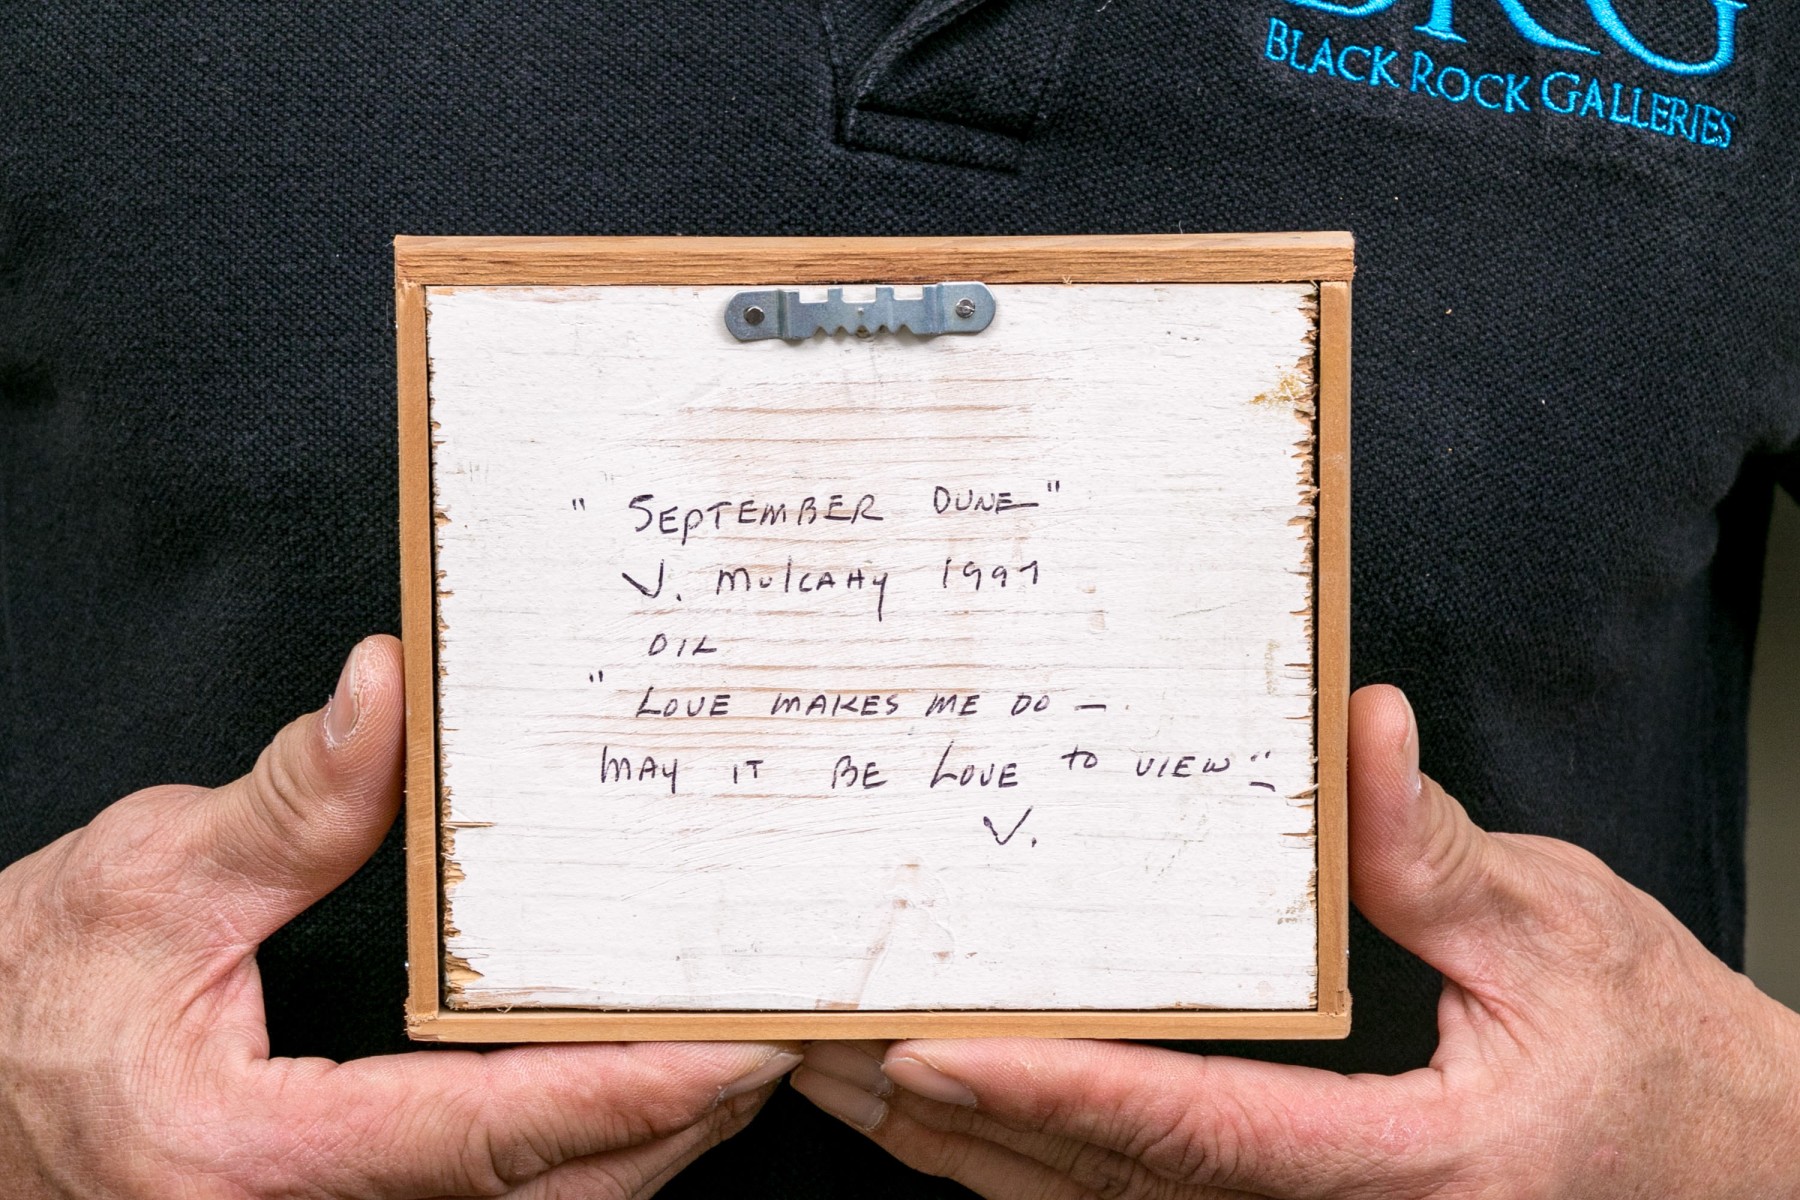 BLACK ROCK GALLERIES
" SEPTEMBER DUNE "
V. MULCAHY 1997
OIL
" LOVE MAKES ME DO —
MAY IT BE LOVE to VIEW "
V.